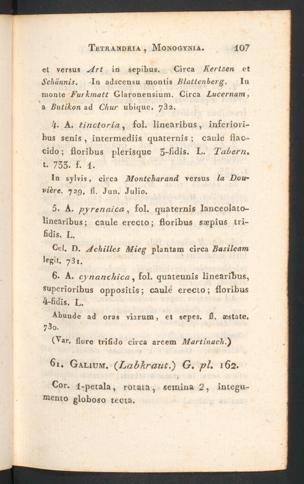 TETRANDRIA, MONOGYNIA. 107
et versus Art in sepibus. Circa Kertzen et
Schännis. In adscensu montis Blattenberg. In
monte Furkmatt Glaronensium. Circa Lucernam,
a Butikon ad Chur ubique. 732.
4. A. tinctoria, fol. linearibus, inferiori-
bus senis, intermediis quaternis; caule flac-
cido; floribus plerisque 3-fidis. L. Tabern.
t. 733. f. 1.
In sylvis, circa Montcharand versus la Dou-
vière. 729. fl. Jun. Julio.
5. A. pyrenaica, fol. quaternis lanceolato-
linearibus; caule erecto; floribus sæpius tri-
fidis. L.
Cel. D. Achilles Mieg plantam circa Basileam
legit. 731.
6. A. cynanchica, fol. quateunis linearibus,
superioribus oppositis; caule erecto; floribus
4-fidis. L.
Abunde ad oras viarum, et sepes. fl. æstate.
730.
(Var. flore trifido circa arcem Martinach.)
61. GALIUM. (Labkraut.) G. pl. 162.
Cor. 1-petala, rotata, semina 2, integu-
mento globoso tecta.